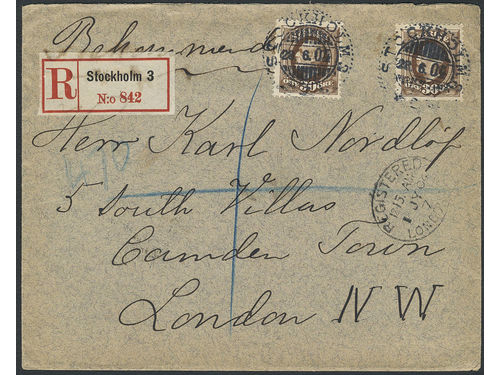 Bekommenderas
R Stockholm 3
N:o 842
STOCKHOLM 3
STOCKHOLM 3
30 ÖRE
30
470
Herr Karl Nordlöf
5 South Villas
Camden Town
London N W
REGISTERED
LONDON